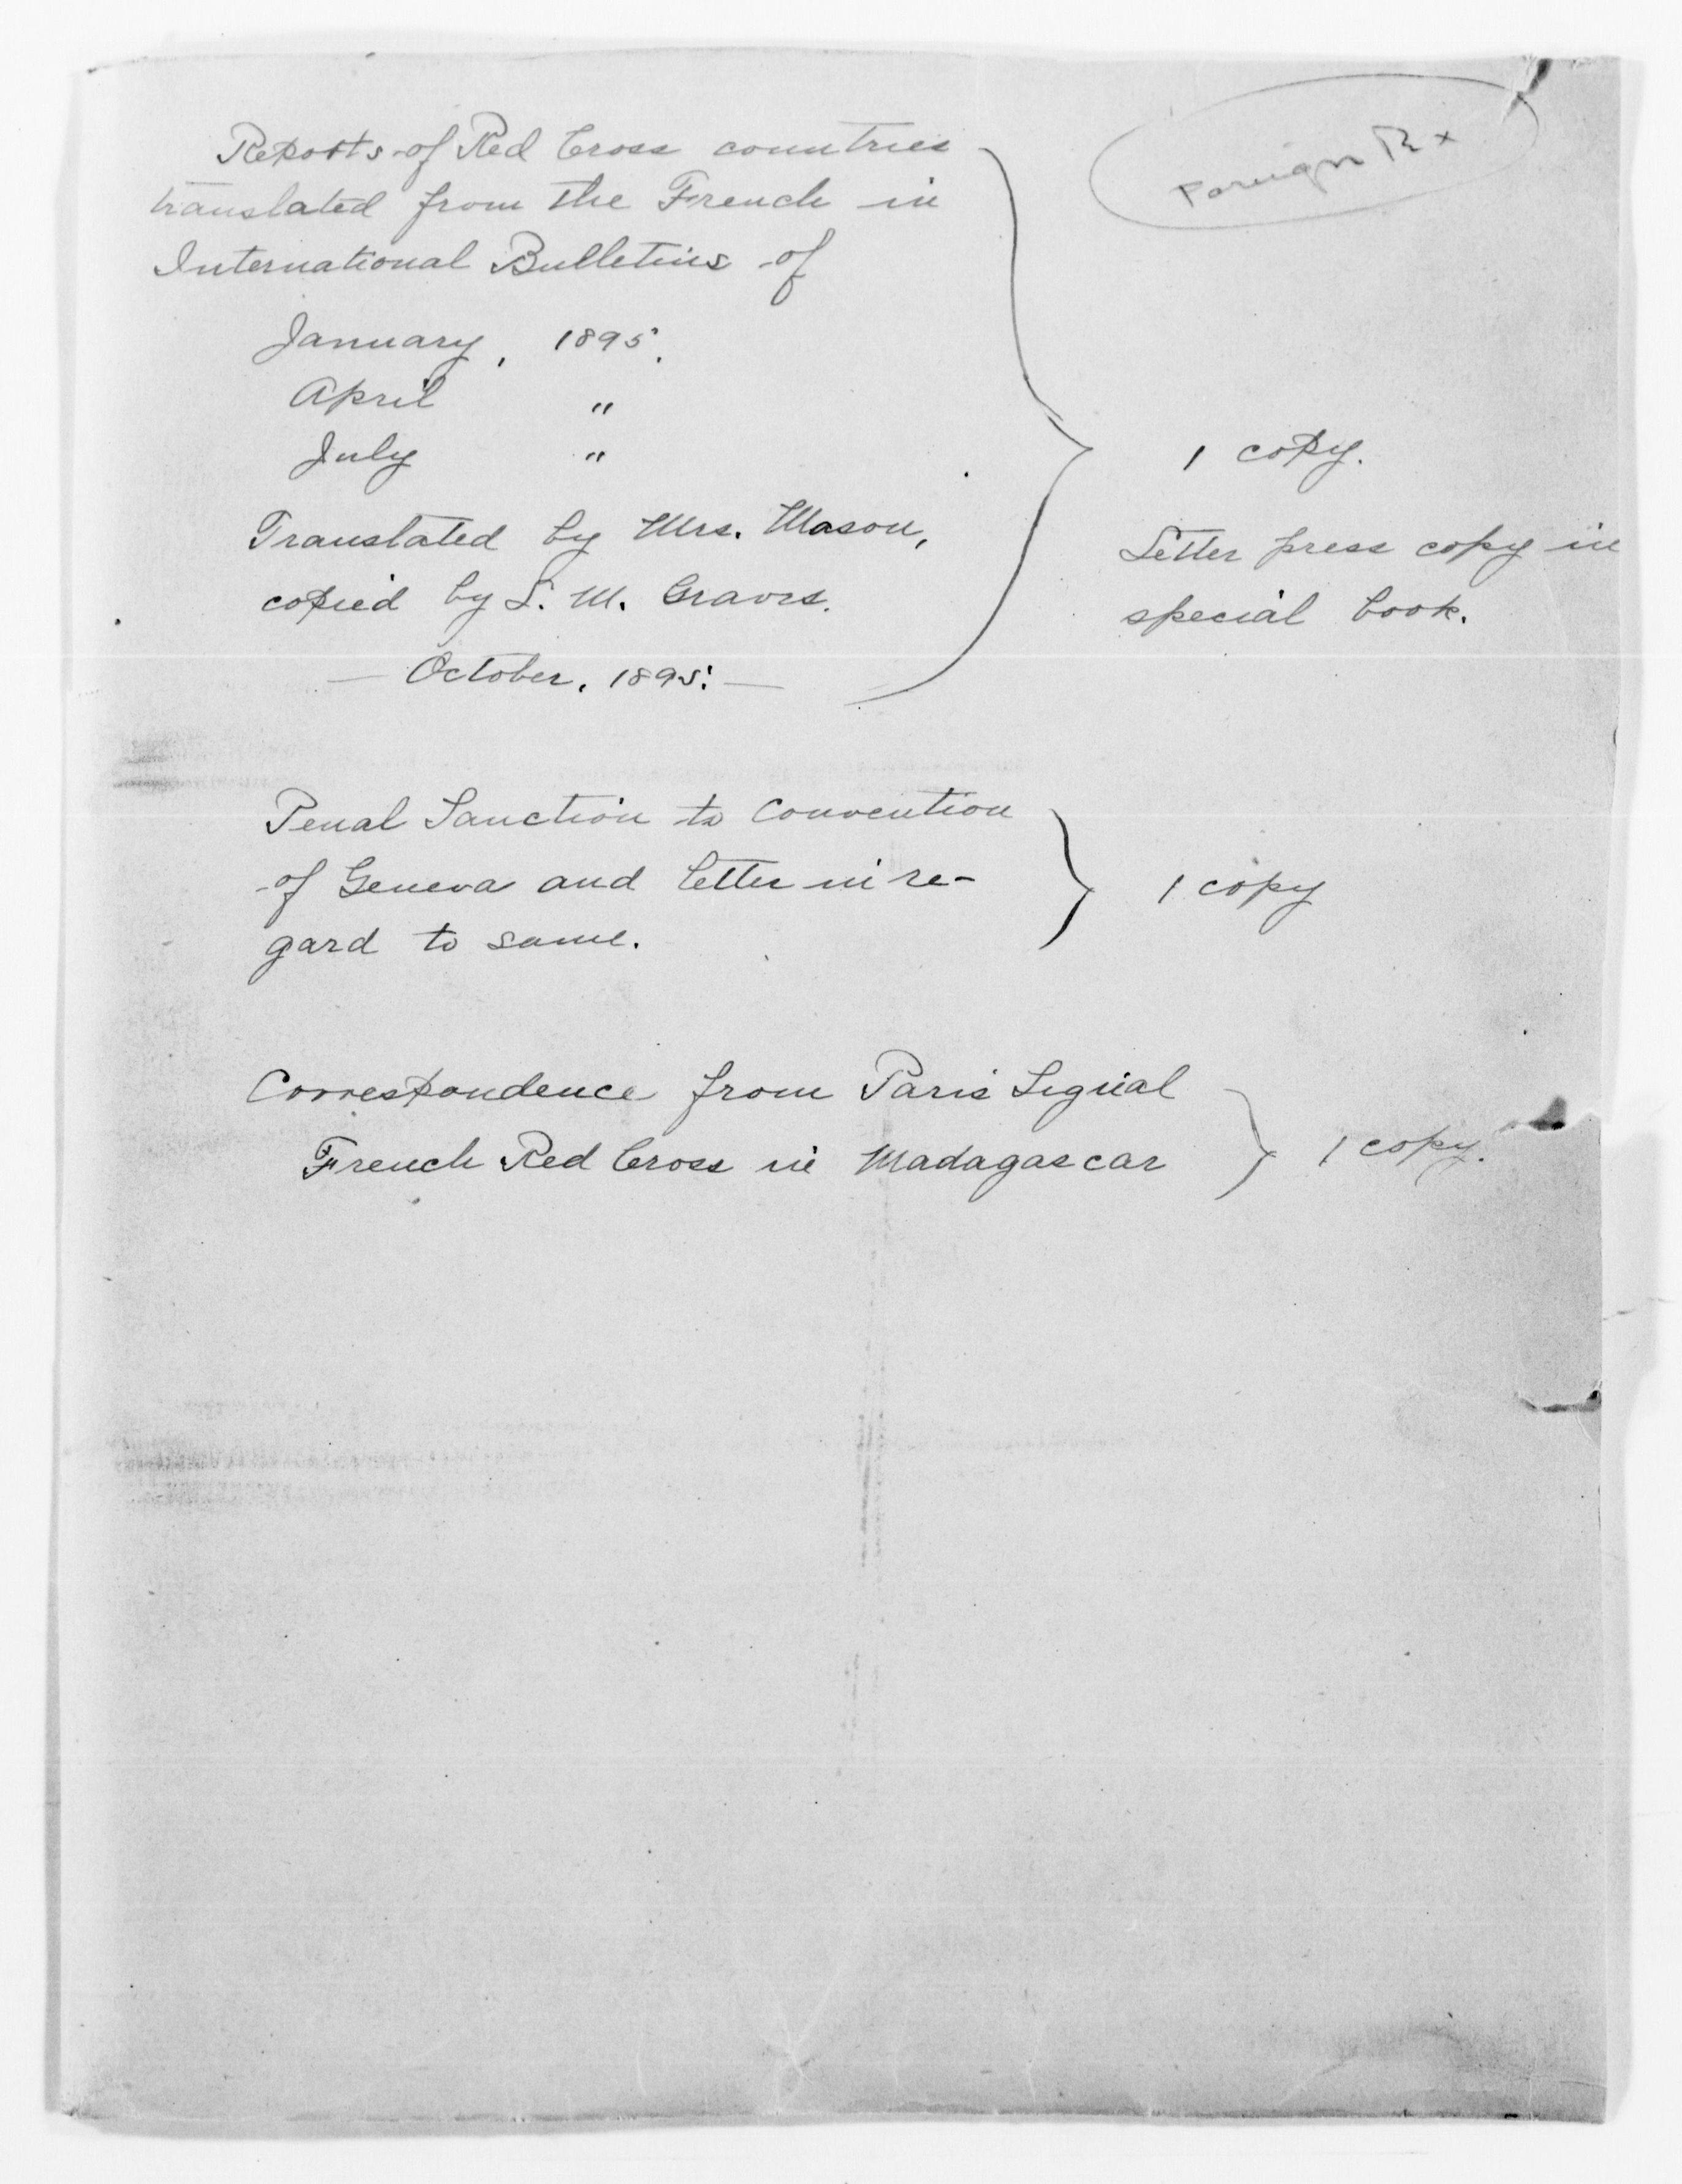 Foreign R x
Reports of Red Cross countries
translated from the French in
International Bulletins of
January, 1895.
April "
July "
1 copy.
Translated by Mrs. Mason,
Letter press copy in
copied by L. M. Graves.
special book.
— October, 1895. —
Penal Sanction to Convention
of Geneva and letter in re-
1 copy
gard to same.
Correspondence from Paris Signal
French Red Cross in Madagascar
1 copy.